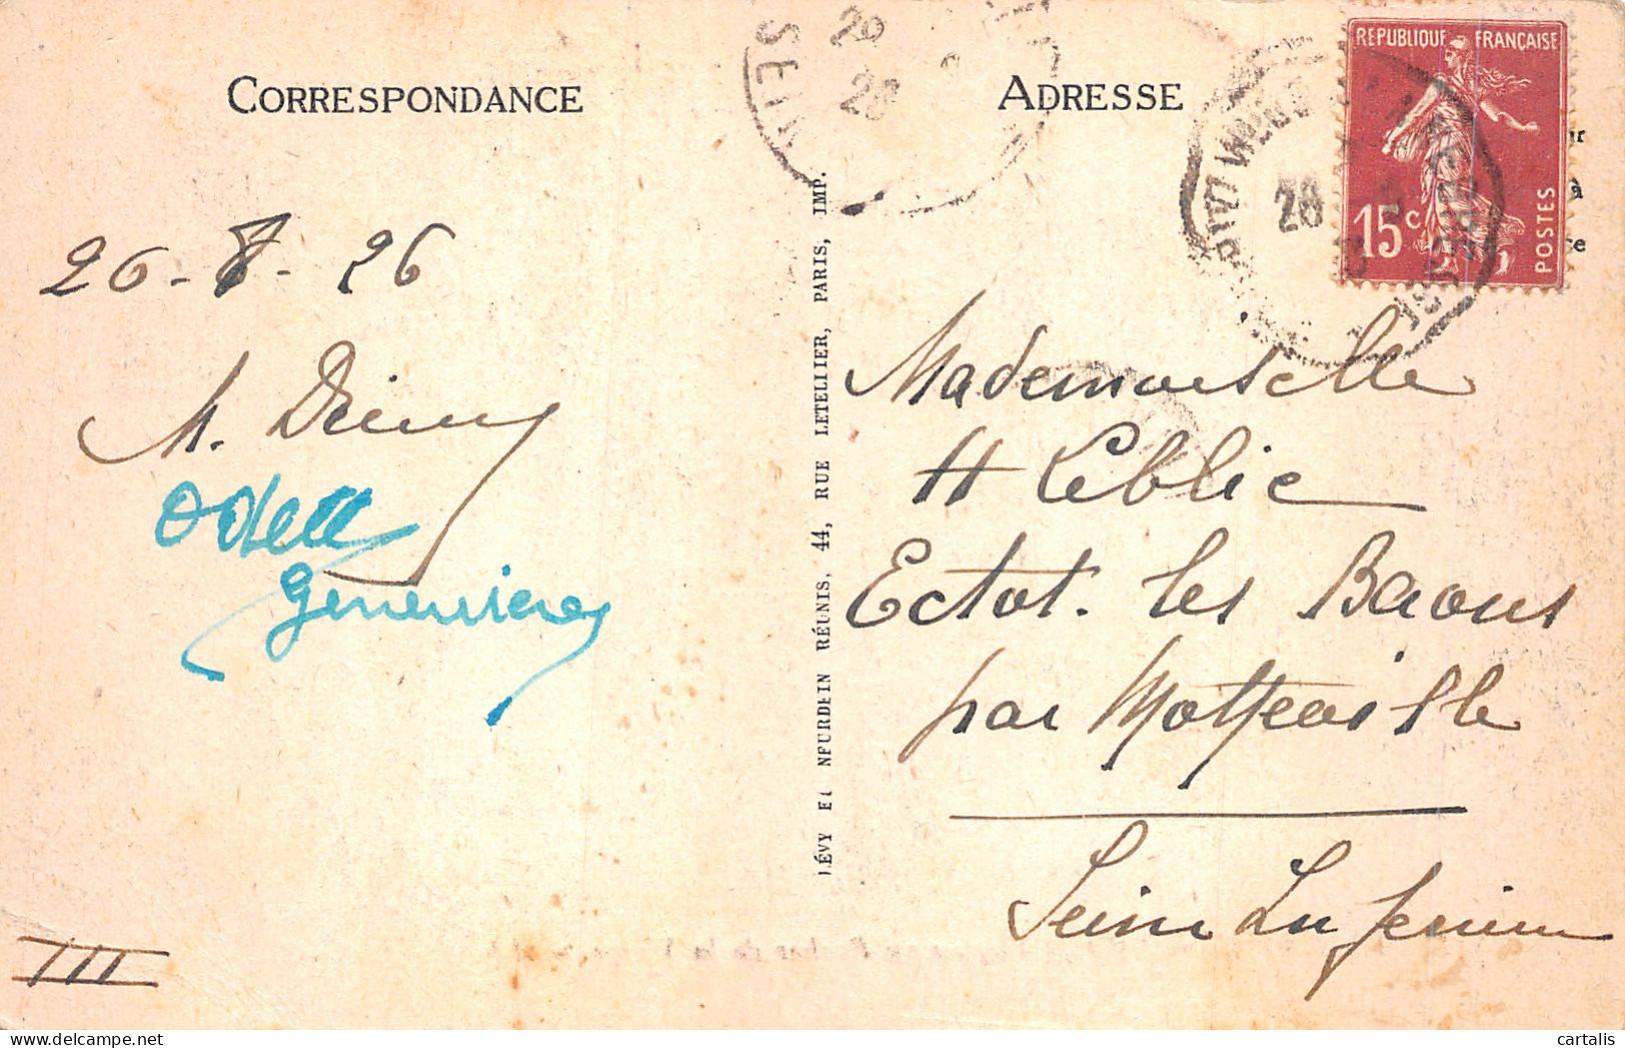 CORRESPONDANCE
26-8-26
Odette
Geneviève
III
LÉVY ET NEURDEIN RÉUNIS, 44, RUE LETELLIER, PARIS, IMP.
ADRESSE
REPUBLIQUE FRANÇAISE
15c
POSTES
28
Mademoiselle
H Leblic
Ectot. les Baons
par Motteville
Seine Inferieure
SEIN
28
cartalis